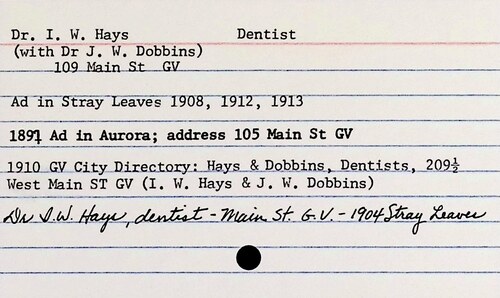 Dr. I. W. Hays Dentist
(with Dr J. W. Dobbins)
109 Main St GV
Ad in Stray Leaves 1908, 1912, 1913
1891 Ad in Aurora; address 105 Main St GV
1910 GV City Directory: Hays & Dobbins, Dentists, 209½
West Main ST GV (I. W. Hays & J. W. Dobbins)
Dr I.W. Hays, dentist - Main St. G.V. - 1904 Stray Leaves